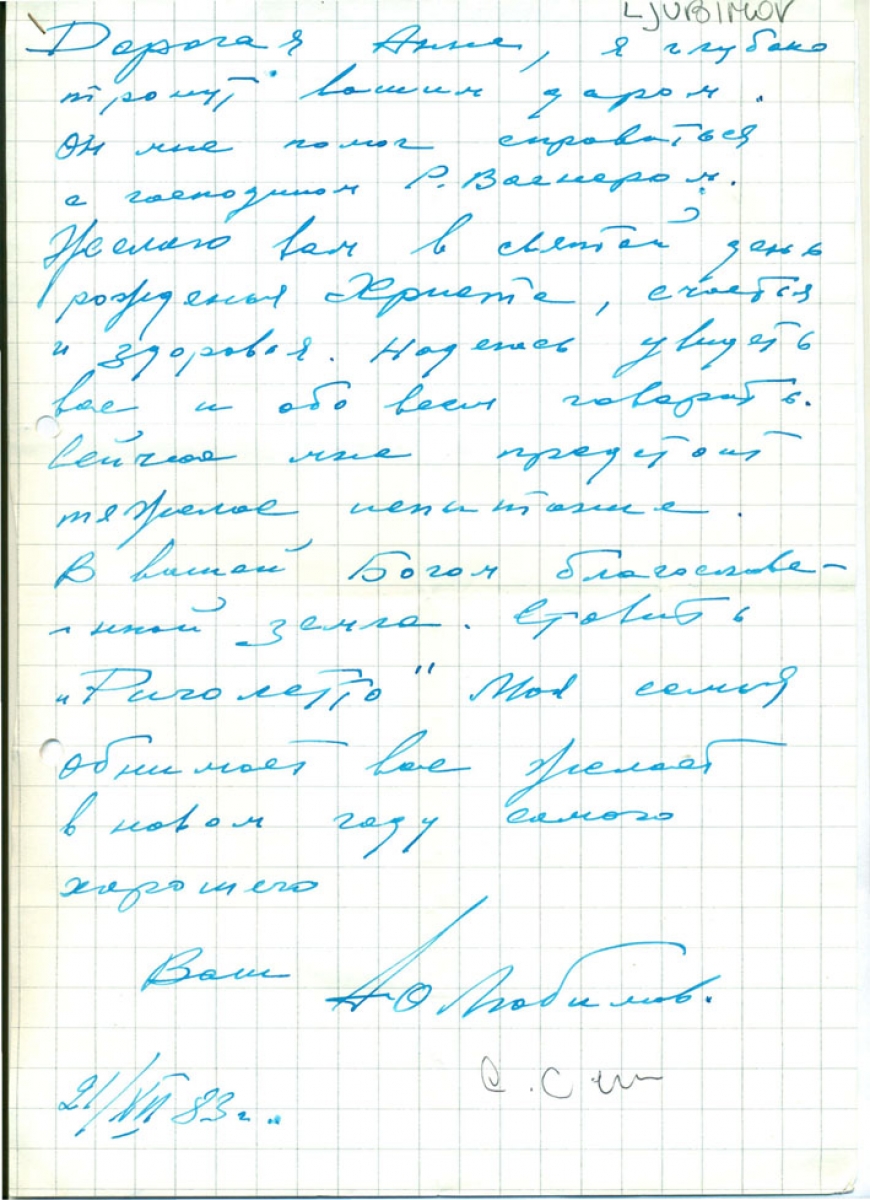 LJUBIMOV
Дорогая Анна, я глубоко
тронут вашим даром.
Он мне помог справиться
с господином Р. Вагнером.
Желаю вам в святой день
рожденья Христа, счастья
и здоровья. Надеюсь увидеть
вас и обо всем говорить.
Сейчас мне предстоит
тяжелое испытание.
В вашей Богом благослове-
нной земле. Ставить
„Риголетто" Моя семья
обнимает вас желает
в новом году самого
хорошего
Ваш Ю Любимов.
21/XII 83 г.